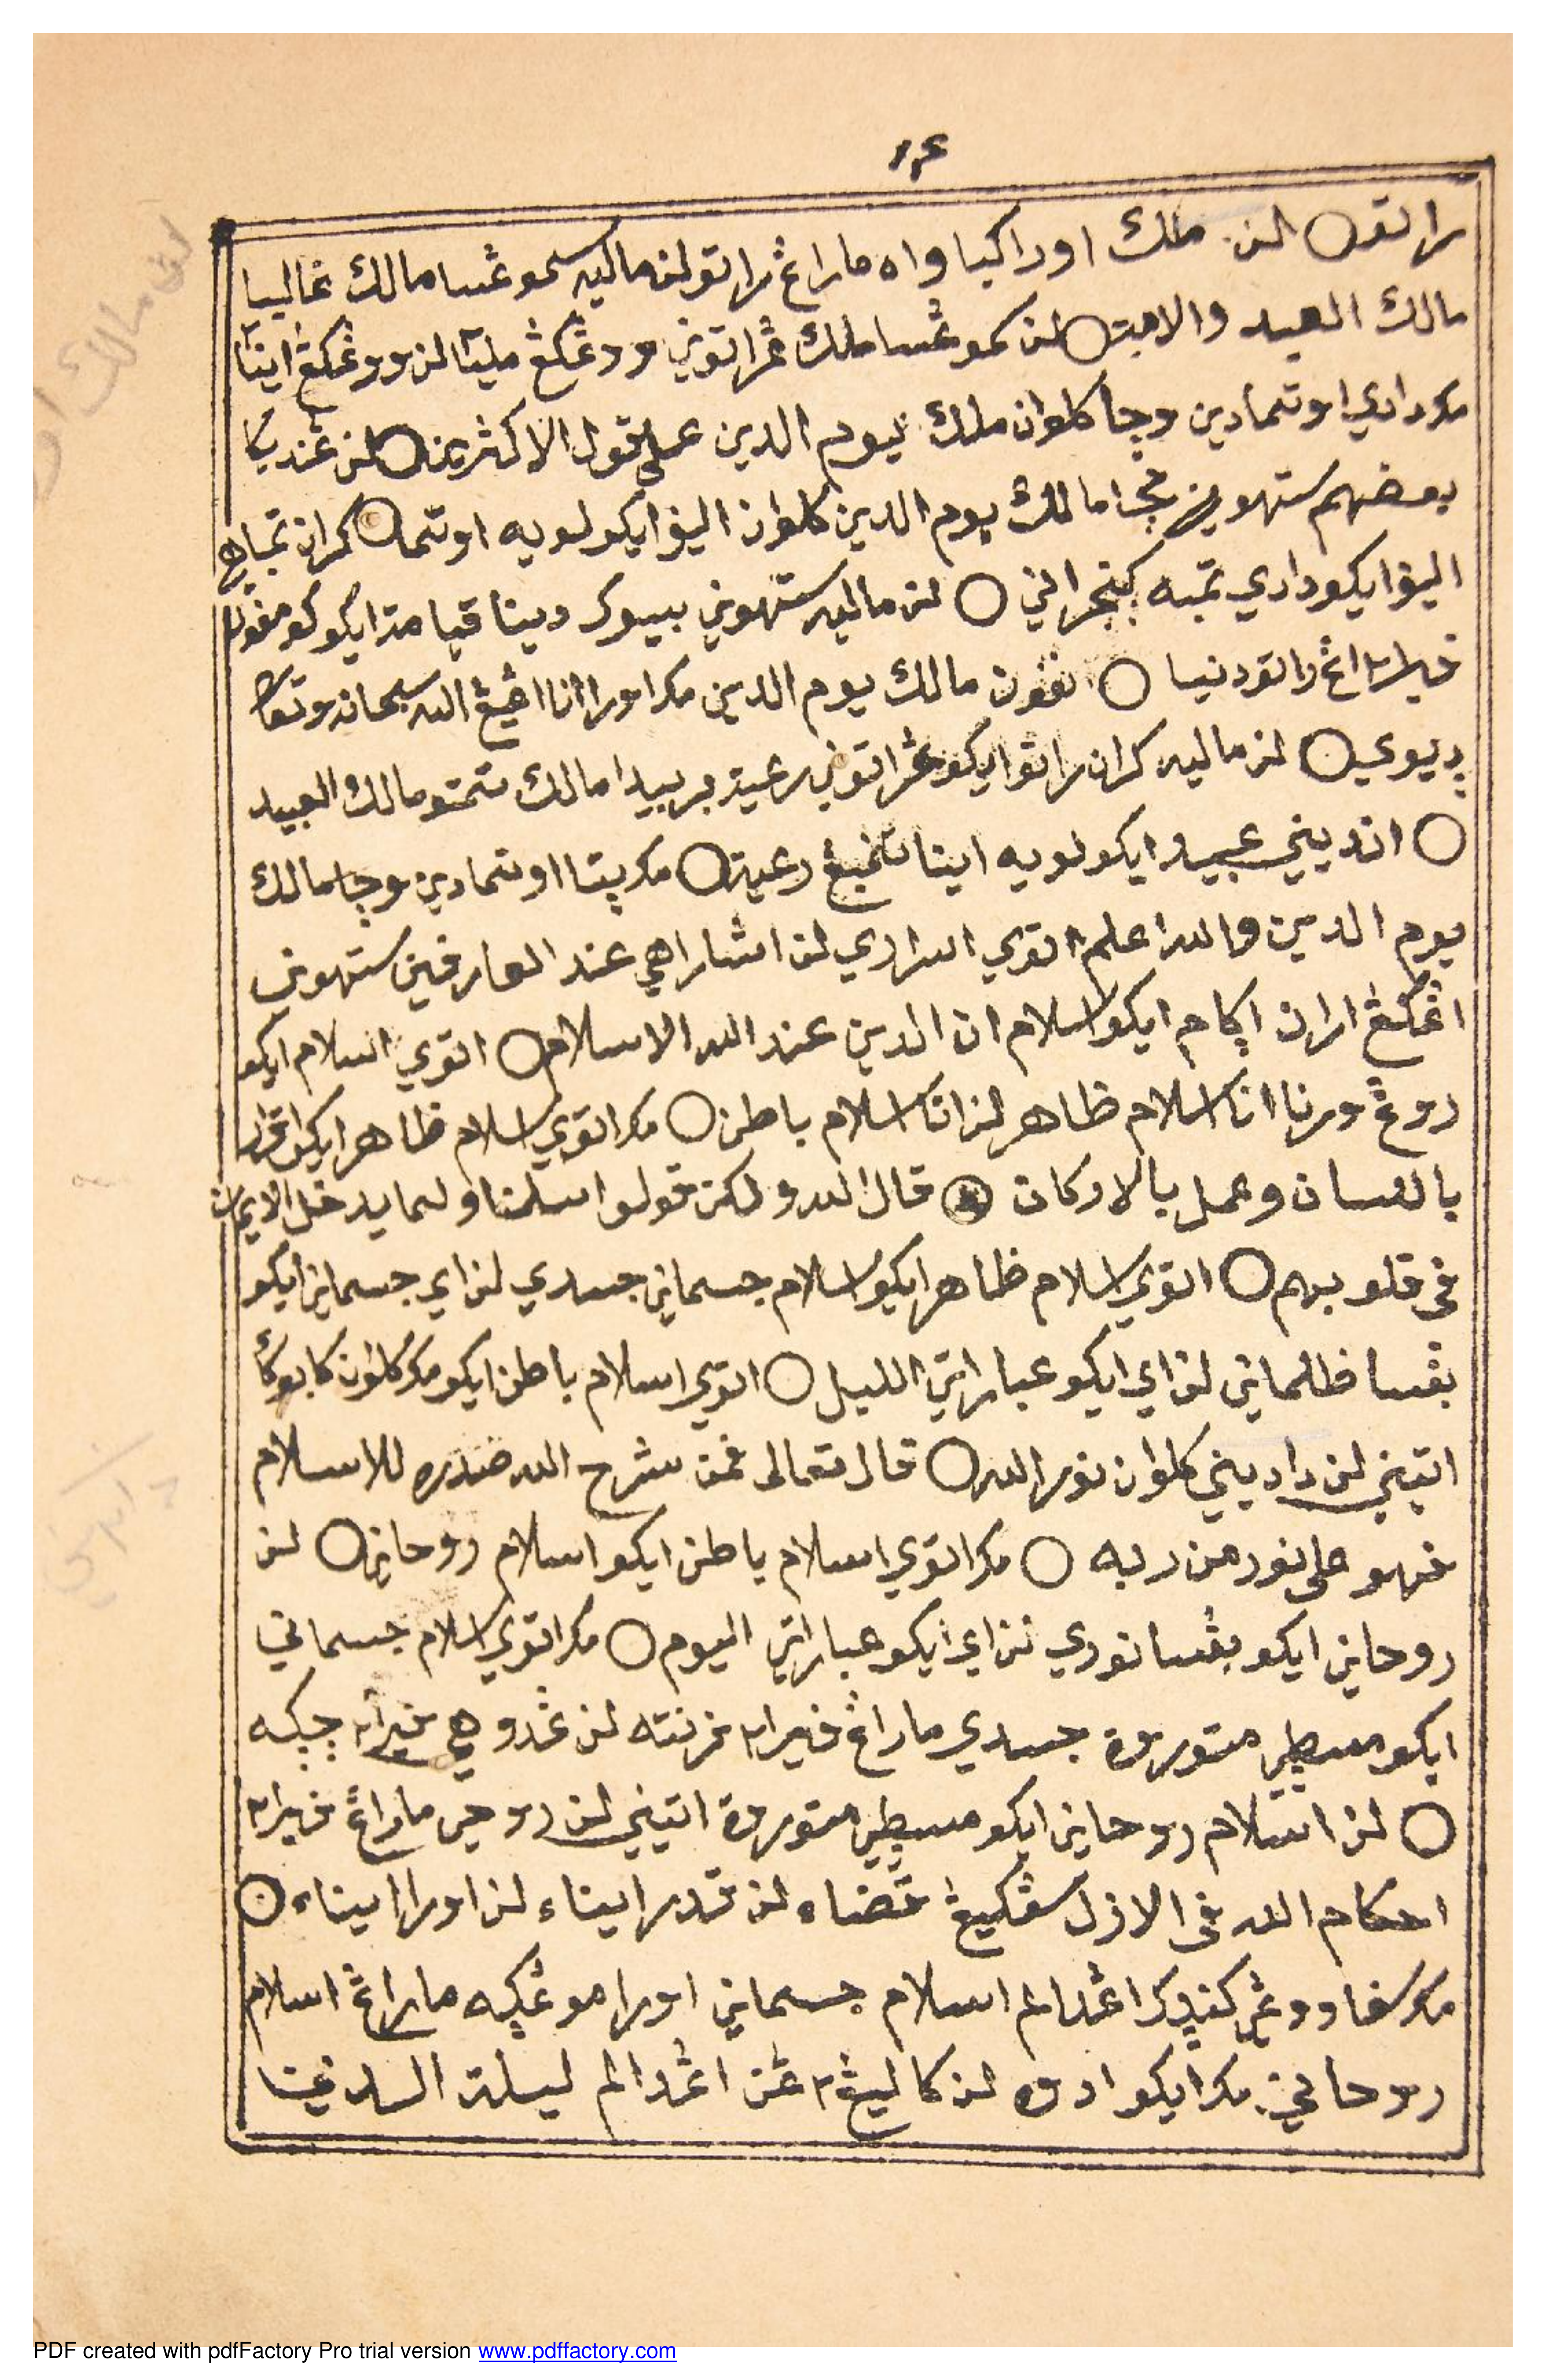 ١٤
راتو ○ لن ملك اورا كيا واه ماراڠ راتو لن ماليه سموڠسا مالك ڠاليبا
مالك العبيد والامة ○ لن كموڠسا ملك ڠراتوني وودڠكڠ لن وودڠكڠ اينا
مكا دادي اوتمادين وچا كلوان ملك يوم الدين على قول الاكثرين ○ لن ڠنديكا
بعضهم ستهوني مچا مالك يوم الدين كلوان اليف ايكو لويه اوتما ○ كران تمباه
اليف ايكو دادي تمبه كنجراني ○ لن ماليه ستهوني بيسوك دينا قيامة ايكو
راتو دنيا ○ مالك يوم الدين مكا اورا انا اڠيڠ الله سبحانه وتعالى
ديوي ○ لن ماليه كران راتو ايكو ڠراتوني رعية بربيدا مالك تتمتو مالك العبيد
○ اندييني عبيد ايكو لويه اينا تنمبڠ رعية ○ مكا پتا اوتمادين وچا مالك
يوم الدين والله اعلم اتوي اسراري لن اشاراهي عند العارفين ستهوني
اڠكڠ اران اڮام ايكو اسلام ان الدين عند الله الاسلام ○ اتوي اسلام ايكو
روڠ ورنا انا اسلام ظاهر لن انا اسلام باطن ○ مكا اتوي اسلام ظاهر ايكو اقرار
باللسان وعمل بالاركان ○ قال الله ولكن قولوا اسلمنا ولما يدخل الايمان
فى قلوبهم ○ اتوي اسلام ظاهر ايكو اسلام جسماني جسدي لن اي جسماني ايكو
بڠسا ظلماني لن اي ايكو عباراتي الليل ○ اتوي اسلام باطن ايكو مكا كلوان كابوكأ
اتيني لن داديني كلوان نور الله ○ قال تعالى فمن شرح الله صدره للاسلام
فهو على نور من ربه ○ مكا اتوي اسلام باطن ايكو اسلام روحاني ○ لن
روحاني ايكو بڠسا نوري لن اي ايكو عباراتي اليوم ○ مكا اتوي اسلام جسماني
ايكو جسدي ماراڠ ڤيرا٢ ڤرنته لن ڠدوهي ڤيرا٢ چڮه
○ لن اسلام روحاني ايكو اتيني لن روحي ماراڠ ڤيرا٢
احكام الله فى الازل سڤكيڠ قضاء لن قدر ايناء لن اورا ايناء ○
مكا سڤا ووڠ كندك اڠدالم اسلام جسماني اورا موڠڮه ماراڠ اسلام
روحاني مكا ايكو ادوه لن كاليڠ٢ ڠن اڠدالم ليلة الدنيا
PDF created with pdfFactory Pro trial version www.pdffactory.com